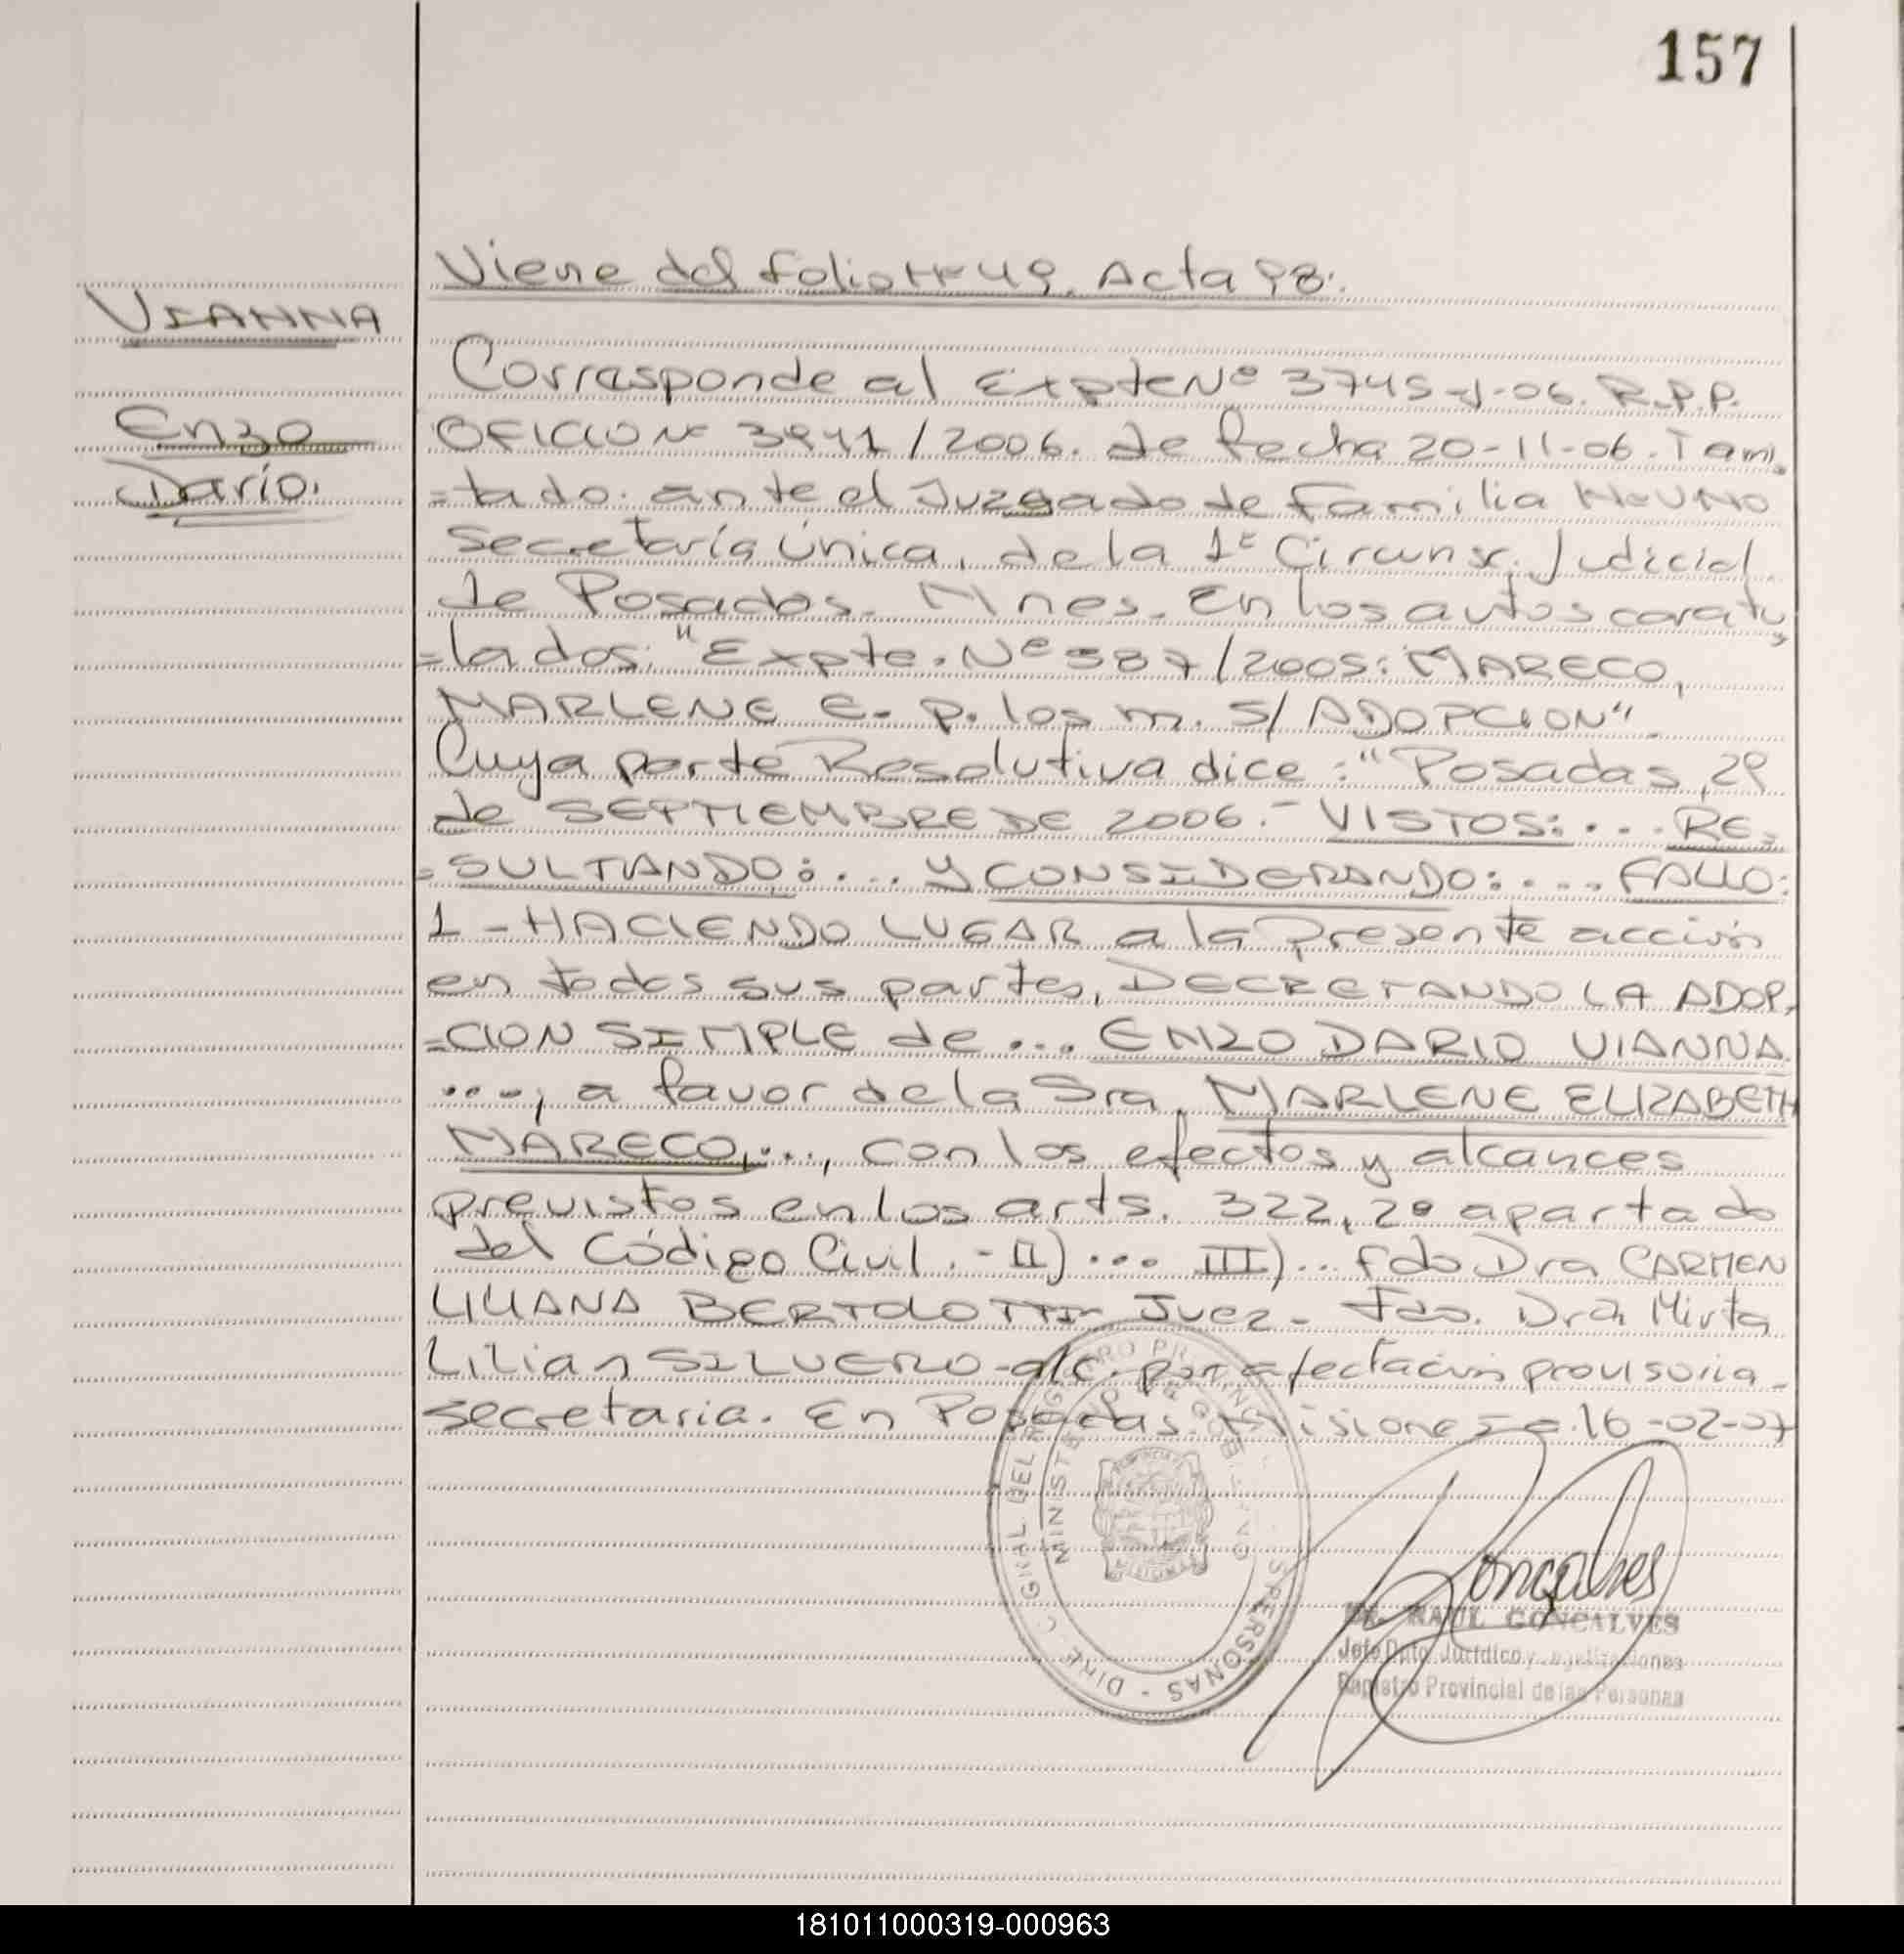 157
Viene del folio Nº 49. Acta 98.
VIANNA
Corresponde al Expte Nº 3745-J-06. R.P.P.
Enzo
OFICIO Nº 3941/2006. de fecha 20-11-06. Tami
Darío.
=tado. ante el Juzgado de Familia Nº UNO
Secretaría Única, de la 1ª Circunsc. Judicial
de Posadas. Mnes. En los autos caratu
=lados: "Expte. Nº 587/2005: MARECO,
MARLENE E. p. los m. S/ADOPCION".
Cuya parte Resolutiva dice: "Posadas, 29
de SEPTIEMBRE DE 2006.- VISTOS:... RE=
=SULTANDO:... Y CONSIDERANDO:... FALLO:
1 - HACIENDO LUGAR a la Presente acción
en todas sus partes, DECRETANDO LA ADOP-
=CION SIMPLE de ... ENZO DARIO VIANNA
...., a favor de la Sra. MARLENE ELIZABETH
MARECO,..., con los efectos y alcances
previstos en los arts. 322, 2º apartado
del Código Civil.- II) ... III)... fdo Dra CARMEN
LILIANA BERTOLOTTI- Juez- Fdo. Dra. Mirta
Lilian SILVERO- a/c. por afectación provisoria-
secretaria. En Posadas. Misiones a. 16-02-07
MINISTERIO DE GOBIERNO
PERSONAS
Gonçalves
DR. RAUL GONCALVES
Jefe Dpto Jurídico y Legalizaciones
Registro Provincial de las Personas
181011000319-000963